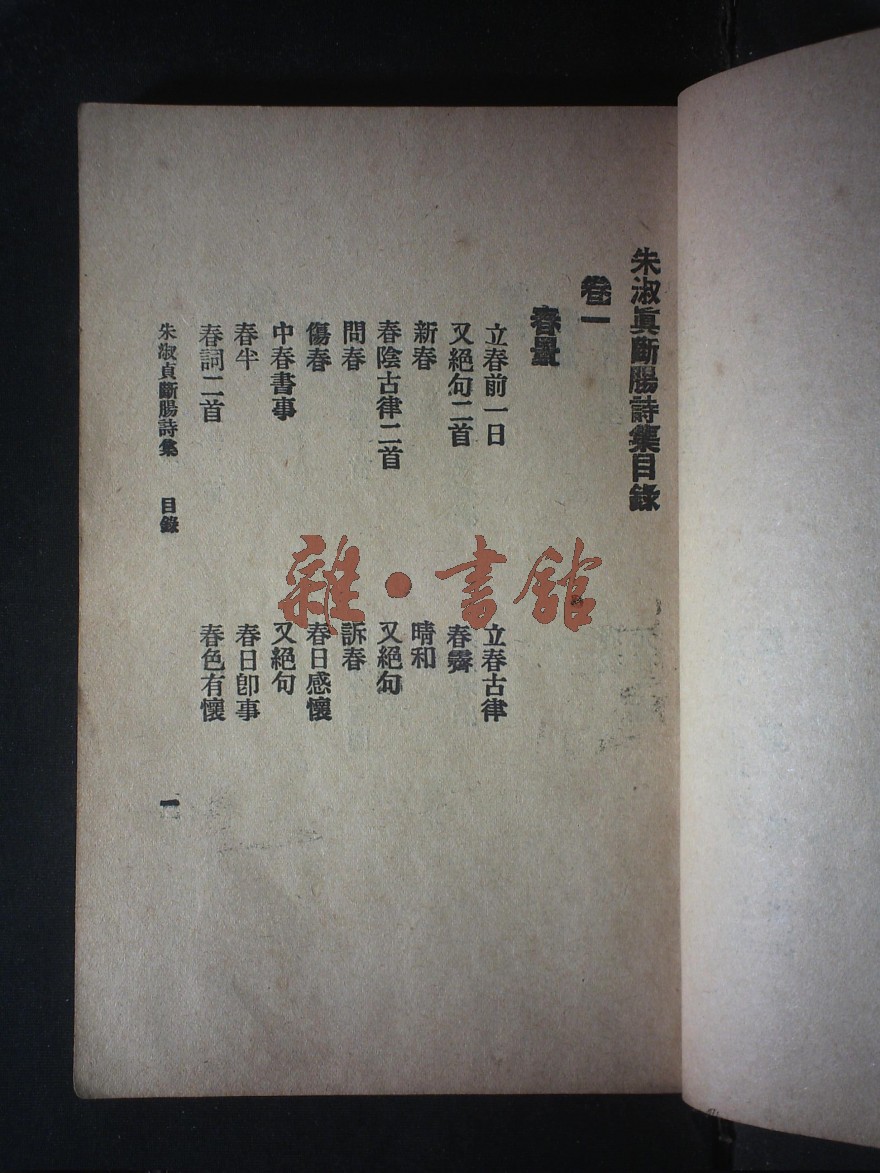 朱淑眞斷腸詩集目錄
卷一
春景
立春前一日　立春古律
又絕句二首　春霽
新春　晴和
春陰古律二首　又絕句
問春　訴春
傷春　春日感懷
中春書事　又絕句
春半　春日卽事
春詞二首　春色有懷
朱淑貞斷腸詩集　目錄　一
雜·書館